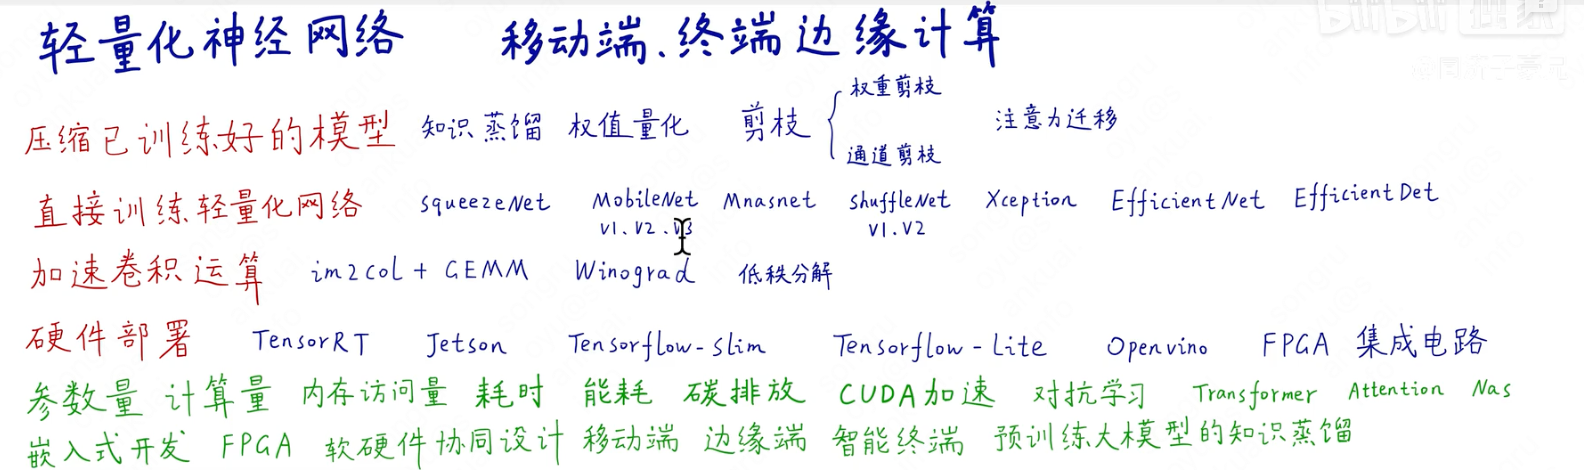 轻量化神经网络 移动端、终端边缘计算
权重剪枝
压缩已训练好的模型 知识蒸馏 权值量化 剪枝 注意力迁移
通道剪枝
直接训练轻量化网络 squeezeNet MobileNet Mnasnet shuffleNet Xception EfficientNet EfficientDet
V1.V2.V3 V1.V2
加速卷积运算 im2col + GEMM Winograd 低秩分解
硬件部署 TensorRT Jetson Tensorflow-Slim Tensorflow-Lite Openvino FPGA 集成电路
参数量 计算量 内存访问量 耗时 能耗 碳排放 CUDA加速 对抗学习 Transformer Attention Nas
嵌入式开发 FPGA 软硬件协同设计 移动端 边缘端 智能终端 预训练大模型的知识蒸馏